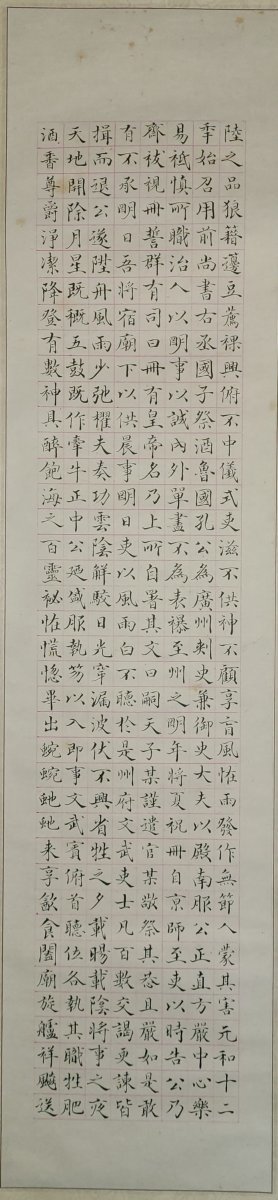 陸之品狼籍籩豆薦祼興俯不中儀式吏滋不供神不顧享盲風怪雨發作無節人蒙其害元和十二
年始召用前尚書右丞國子祭酒魯國孔公為廣州刺史兼御史大夫以殿南服公正直方嚴中心樂
易祗慎所職治人以明事以誠內外單盡不為表襮至州之明年將夏祝冊自京師至吏以時告公乃
齋祓視冊誓群有司曰冊有皇帝名乃上所自署其文曰嗣天子某謹遣官某敬祭其恭且嚴如是敢
有不承明日吾將宿廟下以供晨事明日吏以風雨白不聽於是州府文武吏士凡百數交謁更諫皆
揖而退公遂陞舟風雨少弛櫂夫奏功雲陰解駮日光穿漏波伏不興省牲之夕載暘載陰將事之夜
天地開除月星既概五鼓既作牽牛正中公廼盛服執笏以入即事文武賓俯首聽位各執其職牲肥
酒香尊爵淨潔降登有數神具醉飽海之百靈祕怪慌惚畢出蜿蜿虵虵来享歆食闔廟旋艫祥飈送